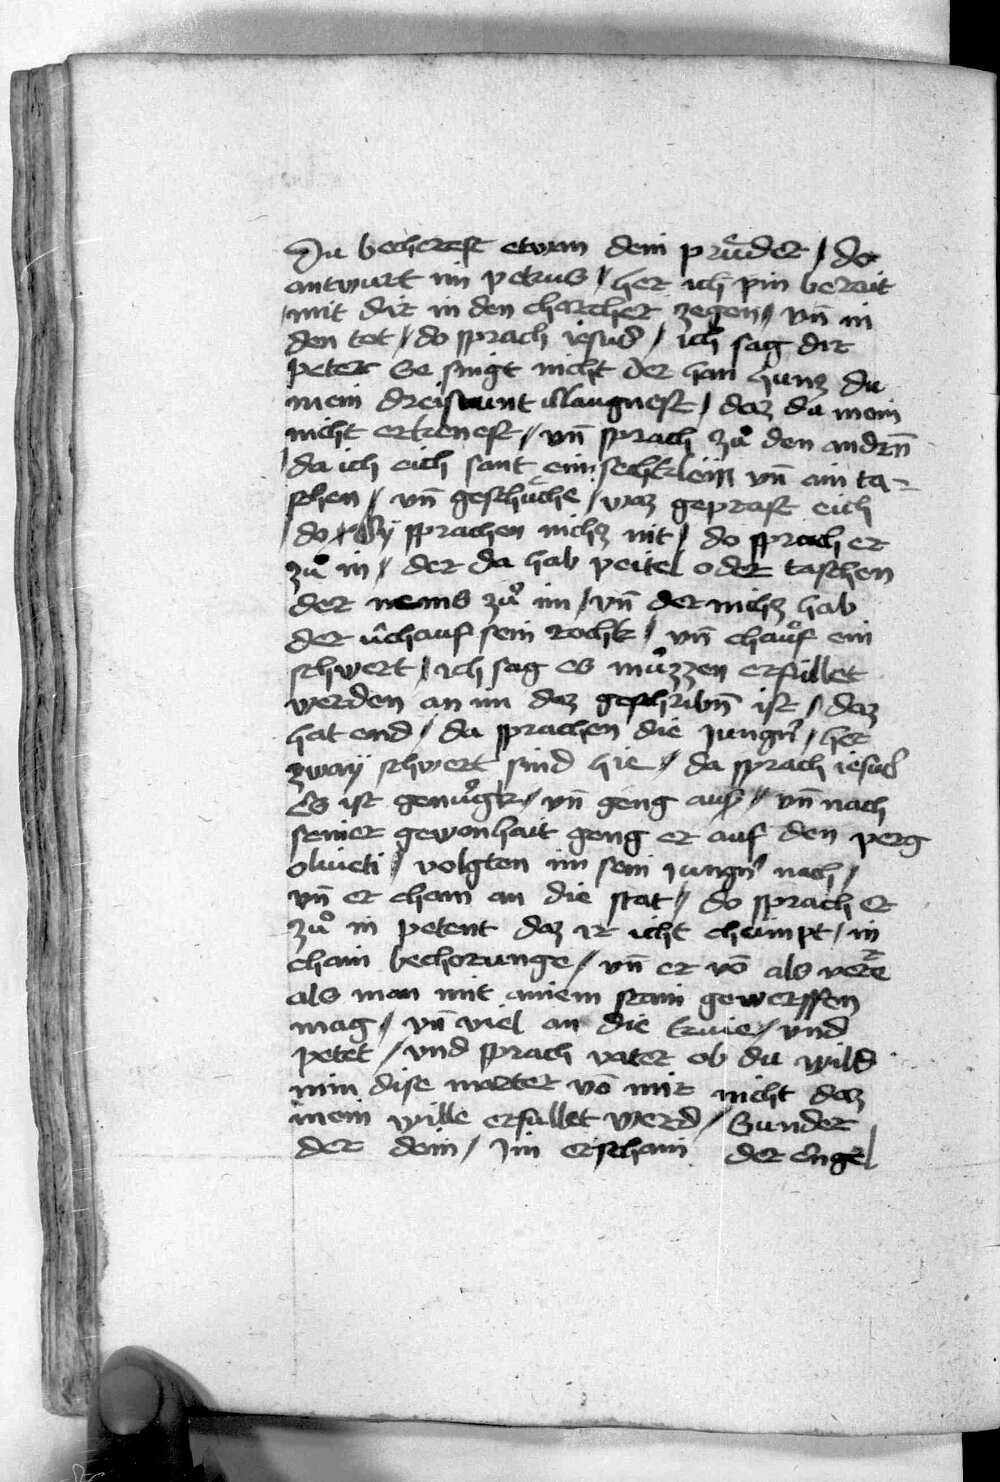 Du becherest etwan dein průder / do
antwurt im petrus / her ich pin berait
mit dir in den chercher zegen / vn̄ in
den tot / do sprach iesus / ich sag dir
peter Se singt nicht der han huntz du
mein dreistunt v̈laugnest / daz du mein
nicht erkenest / vn̄ sprach zů den andrn̄
da ich eich sant ein sechklein vn̄ ain ta-
schen / vn̄ geschůche / waz geprast eich
do / Sy sprachen nichz nit / do sprach er
zů in / der da hab peitel oder taschen
der nems zů im / vn̄ der nichz hab
der v̈chauf sein rochk / vn̄ chauf ein
schwert / ich sag es můzzen erfüllet
werden an im daz geschribn̄ ist / daz
hat end / da sprachen die jungn̄ / her
zway schwert sind hie / da sprach iesus
Es ist genůgk / vn̄ geng aus / vn̄ nach
seiner gewonhait geng er auf den perg
oliueti / volgten im sein jungn̄ nach /
vn̄ er cham an die stat / do sprach er
zů in petent daz ir icht chümpt / in
chain bechorunge / vn̄ er vō als verre
als man mit ainem stain gewerffen
mag / vn̄ viel an die knie / vnd
petet / vnd sprach vater ob du wild
nim dise marter vō mir nicht daz
mein wille erfullet werd / Sunder
der dein / Im erschain der Engel